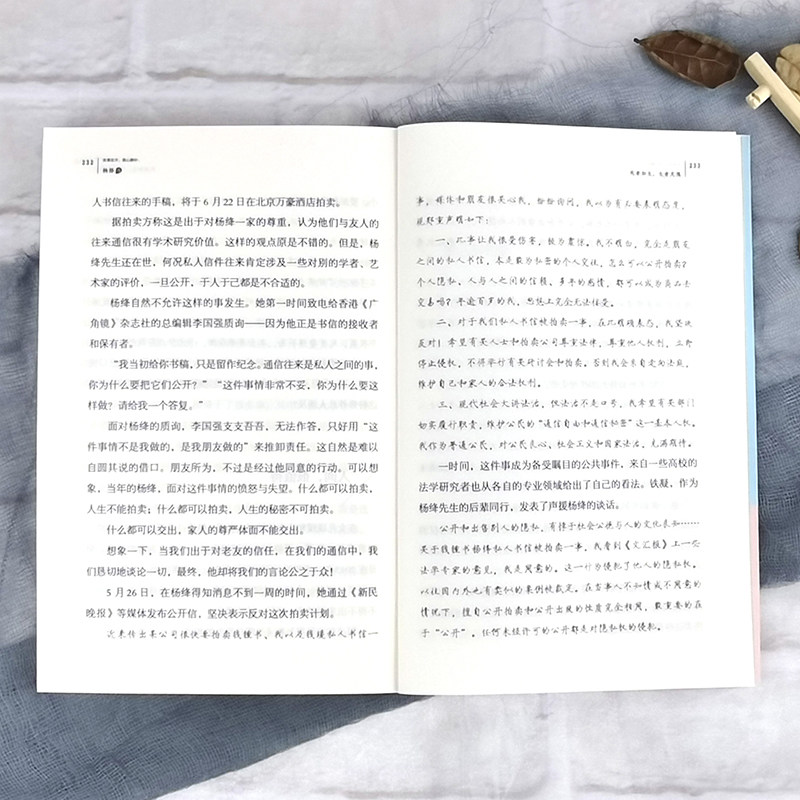 232
杨绛传
人书信往来的手稿，将于 6 月 22 日在北京万豪酒店拍卖。
据拍卖方称这是出于对杨绛一家的尊重，认为他们与友人的
往来通信很有学术研究价值。这样的观点原是不错的。但是，杨
绛先生还在世，何况私人信件往来肯定涉及一些对别的学者、艺术
家的评价，一旦公开，于人于己都是不合适的。
杨绛自然不允许这样的事发生。她第一时间致电给香港《广
角镜》杂志社的总编辑李国强质询——因为他正是书信的接收者
和保有者。
“我当初给你书稿，只是留作纪念。通信往来是私人之间的事，
你为什么要把它们公开？”“这件事情非常不妥，你为什么要这
样做？请给我一个答复。”
面对杨绛的质询，李国强支支吾吾，无法作答，只好用“这
件事情不是我做的，是我朋友做的”来推卸责任。这自然是难以
自圆其说的借口。朋友所为，不过是经过他同意的行动。可以想
象，当年的杨绛，面对这件事情的愤怒与失望。什么都可以拍卖，
人生不能拍卖；什么都可以拍卖，人生的秘密不可拍卖。
什么都可以交出，家人的尊严体面不能交出。
想象一下，当我们出于对老友的信任，在我们的通信中，我
们恳切地谈论一切，最终，他却将我们的言论公之于众！
5 月 26 日，在杨绛得知消息不到一周的时间，她通过《新民
晚报》等媒体发布公开信，坚决表示反对这次拍卖计划。
近来传出某公司很快要拍卖钱锺书、我以及钱瑗私人书信一
233
事，媒体和朋友很关心我，纷纷询问，我以为有必要表明态度，
现郑重声明如下：
一、此事让我很受伤害，极为震惊。我不明白，完全是朋友
之间的私人书信，本是最为私密的个人交往，怎么可以公开拍卖？
个人隐私、人与人之间的信赖、多年的感情，都可以成为商品去
交易吗？年逾百岁的我，思想上完全无法接受。
二、对于我们私人书信被拍卖一事，在此明确表态，我坚决
反对！希望有关人士和拍卖公司尊重法律，尊重他人权利，立即
停止侵权，不得举行有关研讨会和拍卖。否则我会亲自走向法庭，
维护自己和家人的合法权利。
三、现代社会大讲法治，但法治不是口号，我希望有关部门
切实履行职责，维护公民的“通信自由和通信秘密”这一基本人权。
我作为普通公民，对公民良心、社会正义和国家法治，充满期待。
一时间，这件事成为备受瞩目的公共事件，来自一些高校的
法学研究者也从各自的专业领域给出了自己的看法。铁凝，作为
杨绛先生的后辈同行，发表了声援杨绛的谈话。
公开和出售别人的隐私，有悖于社会公德与人的文化良知……
关于钱锺书杨绛私人书信被拍卖一事，我看到《文汇报》上一些
法学专家的意见，我是同意的。这一行为侵犯了他人的隐私权，
以往国内外也有类似的案例被裁定。在当事人不知情或不同意的
情况下，擅自公开拍卖和公开出版的性质完全相同，最重要的在
于“公开”。任何未经许可的公开都是对隐私权的侵犯。